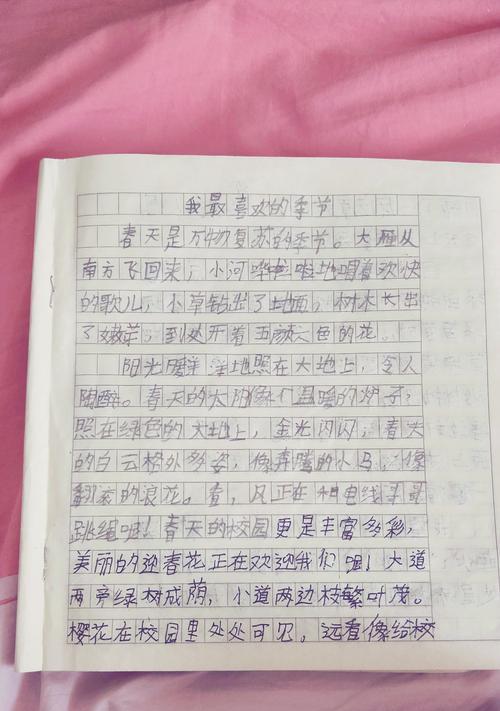 我最喜欢的季节
春天是万物复苏的季节。大雁从
南方飞回来，小河哗啦啦地唱着欢快
的歌儿，小草钻出了地面，树木长出
了嫩芽，到处开着五颜六色的花。
阳光暖洋洋地照在大地上，令人
陶醉。春天的太阳像个温暖的炉子，
照在绿色的大地上，金光闪闪，春天
的白云格外多姿，像奔腾的小马，像
翻滚的浪花。看，风正在和电线哥哥
跳绳呢！春天的校园更是丰富多彩，
美丽的迎春花正在欢迎我们呢！大道
两旁绿树成荫，小道两边枝繁叶茂。
樱花在校园里处处可见，远看像给校